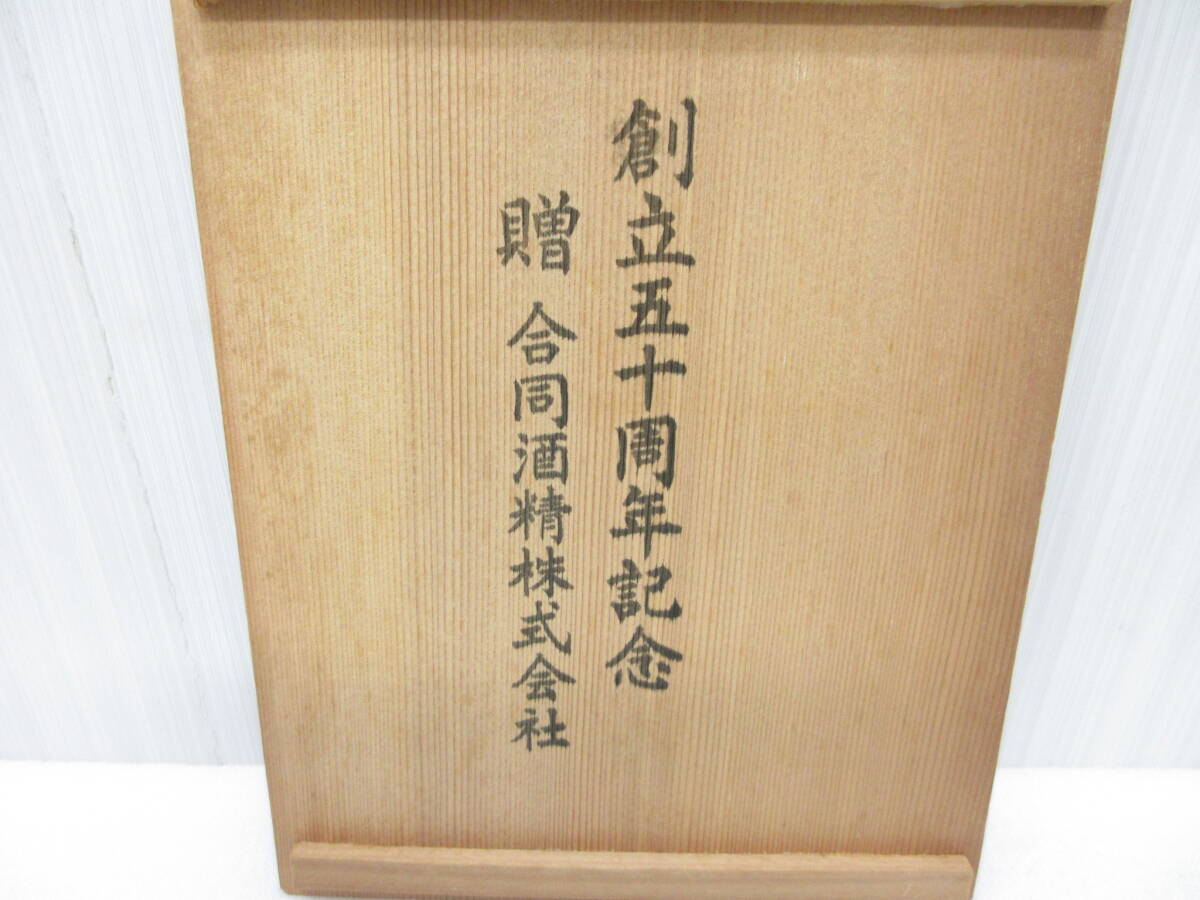 創立五十周年記念
贈 合同酒精株式会社